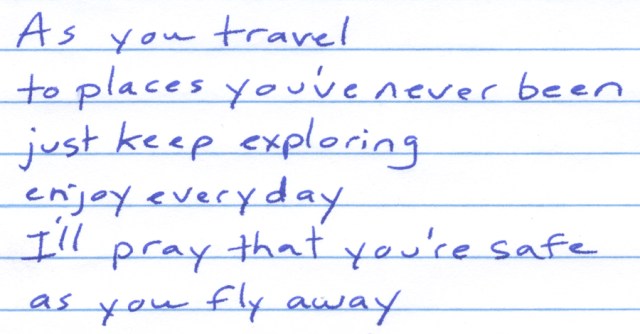 As you travel
to places you've never been
just keep exploring
enjoy everyday
I'll pray that you're safe
as you fly away